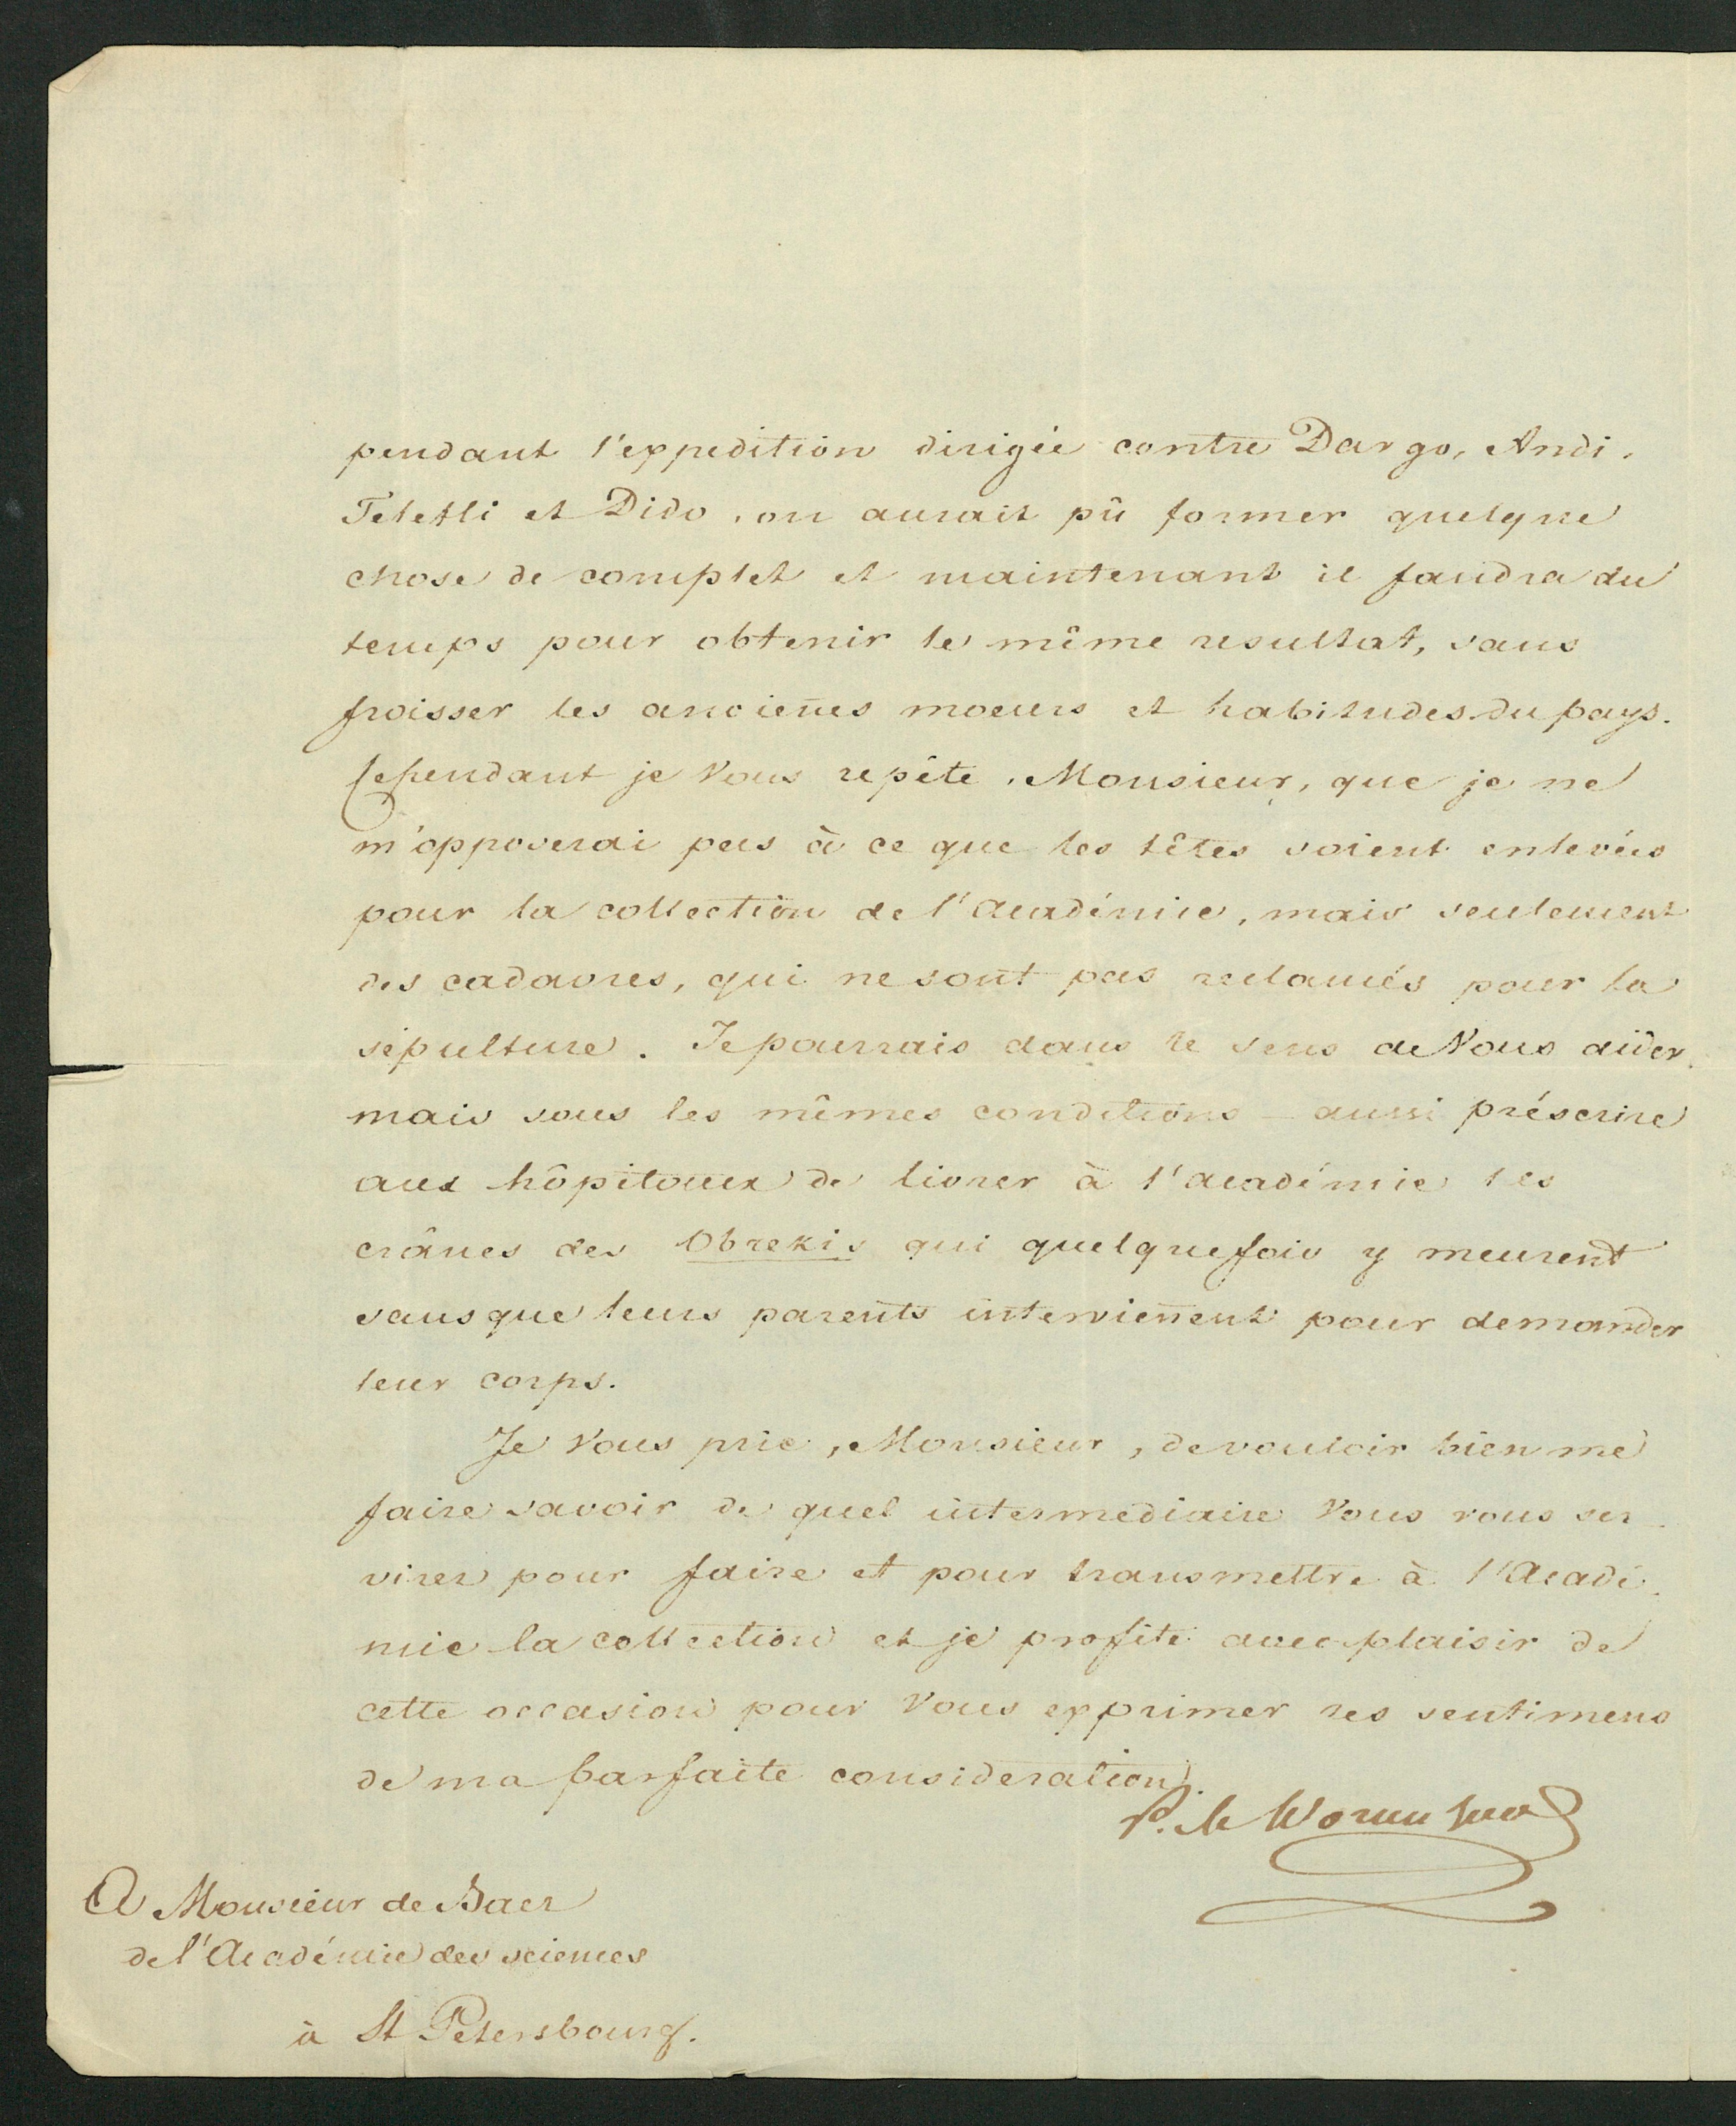 pendant l'expedition dirigée contre Dargo, Andi,
Teletli et Dido, on aurait pû former quelque
chose de complet et maintenant il faudra du
temps pour obtenir le même resultat, sans
froisser les ancienes moeurs et habitudes du pays.
Cependant je Vous repête, Monsieur, que je ne
m'opposerai pas à ce que les têtes soient enlevées
pour la collection de l'Académie, mais seulement
des cadavres, qui ne sont pas reclamés pour la
sépulture. Je pourrais dans le sens de Vous aider,
mais sous les mêmes conditions – aussi préscrire
aux hôpitaux de livrer à l'académie les
crânes des Obrekis qui quelque fois y meurent
sans que leurs parents intervienent pour demander
leur corps.
Je Vous prie, Monsieur, de vouloir bien me
faire savoir de quel intermediaire Vous vous ser-
virez pour faire et pour transmettre à l'Acadé-
mie la collection et je profite avec plaisir de
cette occasion pour Vous exprimer les sentimens
de ma parfaite consideration.
A Monsieur de Baer
de l'Académie des sciences
à St Petersbourg.